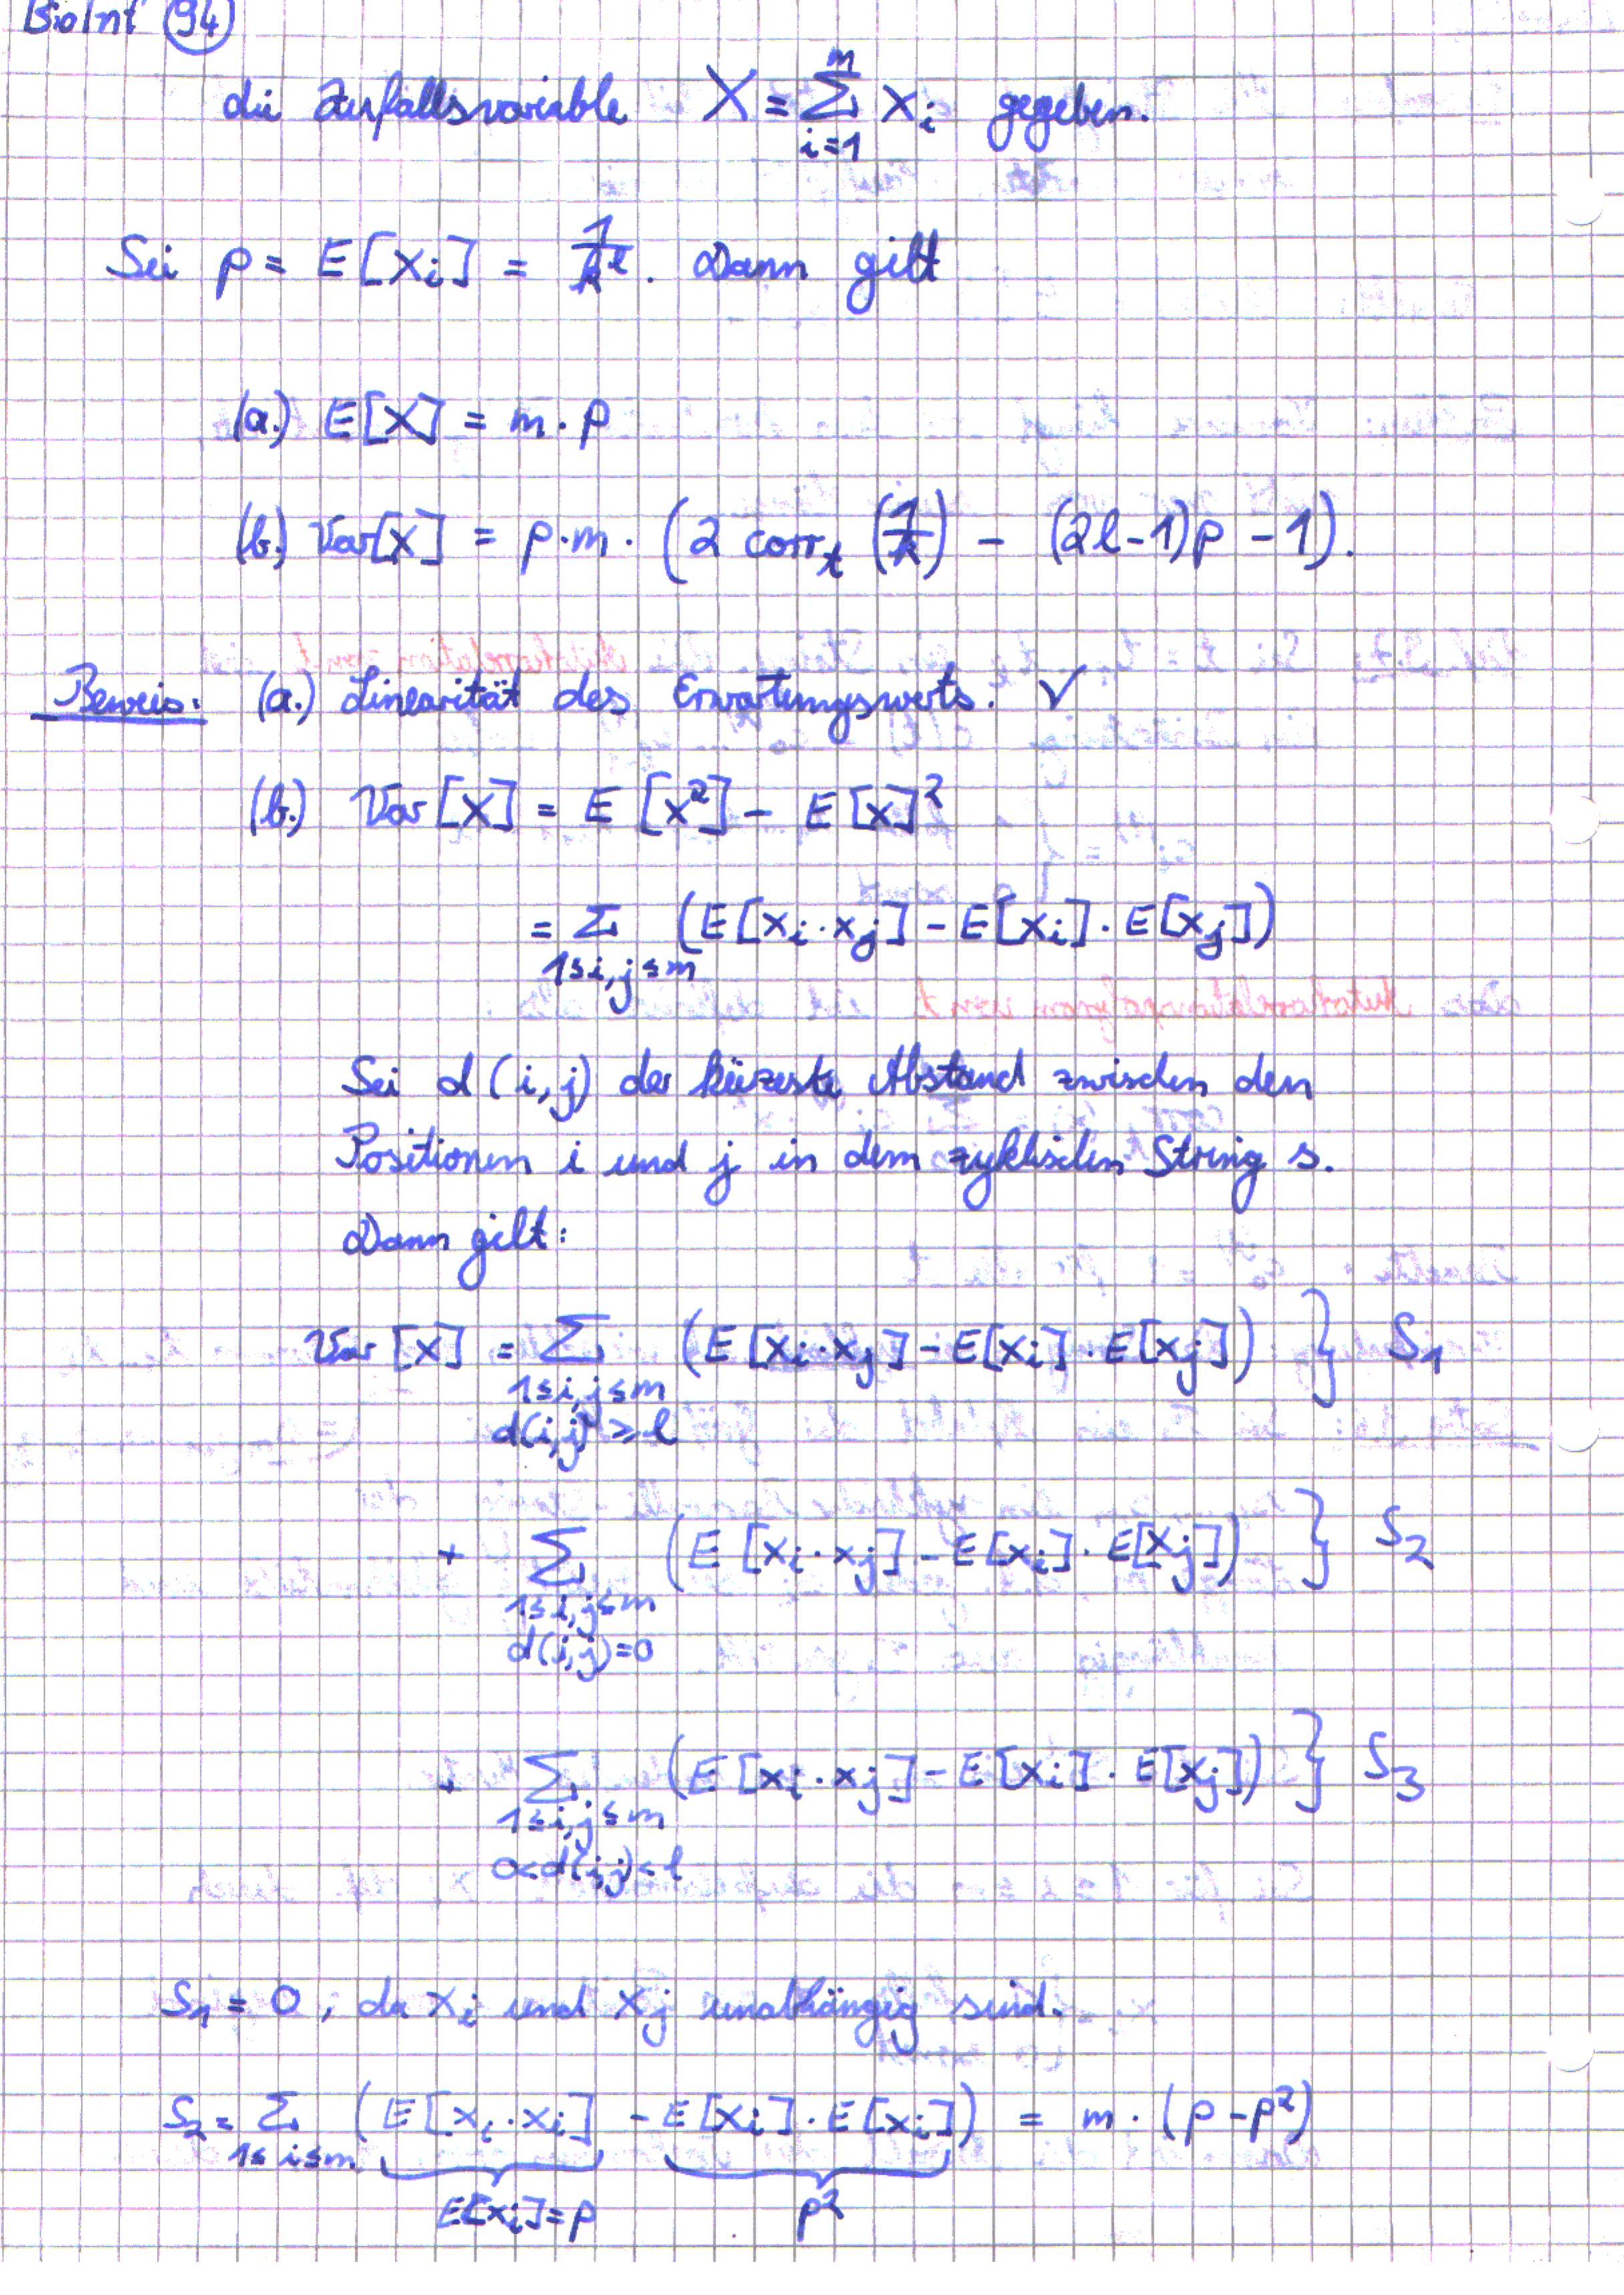 BioInf 94
die Zufallsvariable X = ∑_{i=1}^{m} x_i gegeben.
Sei p = E[x_i] = 1/k^l. Dann gilt
(a.) E[X] = m · p
(b.) Var[X] = p·m · (2 corr_t (1/k) - (2l-1)p - 1).
Beweis: (a.) Linearität des Erwartungswerts. ✓
(b.) Var[X] = E[X²] - E[X]²
= ∑_{1≤i,j≤m} (E[x_i · x_j] - E[x_i] · E[x_j])
Sei d(i,j) der kürzeste Abstand zwischen den
Positionen i und j in dem zyklischen String s.
Dann gilt:
Var[X] = ∑_{1≤i,j≤m, d(i,j)≥l} (E[x_i · x_j] - E[x_i] · E[x_j]) } S_1
+ ∑_{1≤i,j≤m, d(i,j)=0} (E[x_i · x_j] - E[x_i] · E[x_j]) } S_2
+ ∑_{1≤i,j≤m, 0<d(i,j)<l} (E[x_i · x_j] - E[x_i] · E[x_j]) } S_3
S_1 = 0, da x_i und x_j unabhängig sind.
S_2 = ∑_{1≤i≤m} (E[x_i · x_i] - E[x_i] · E[x_i]) = m · (p - p²)
E[x_i] = p p²